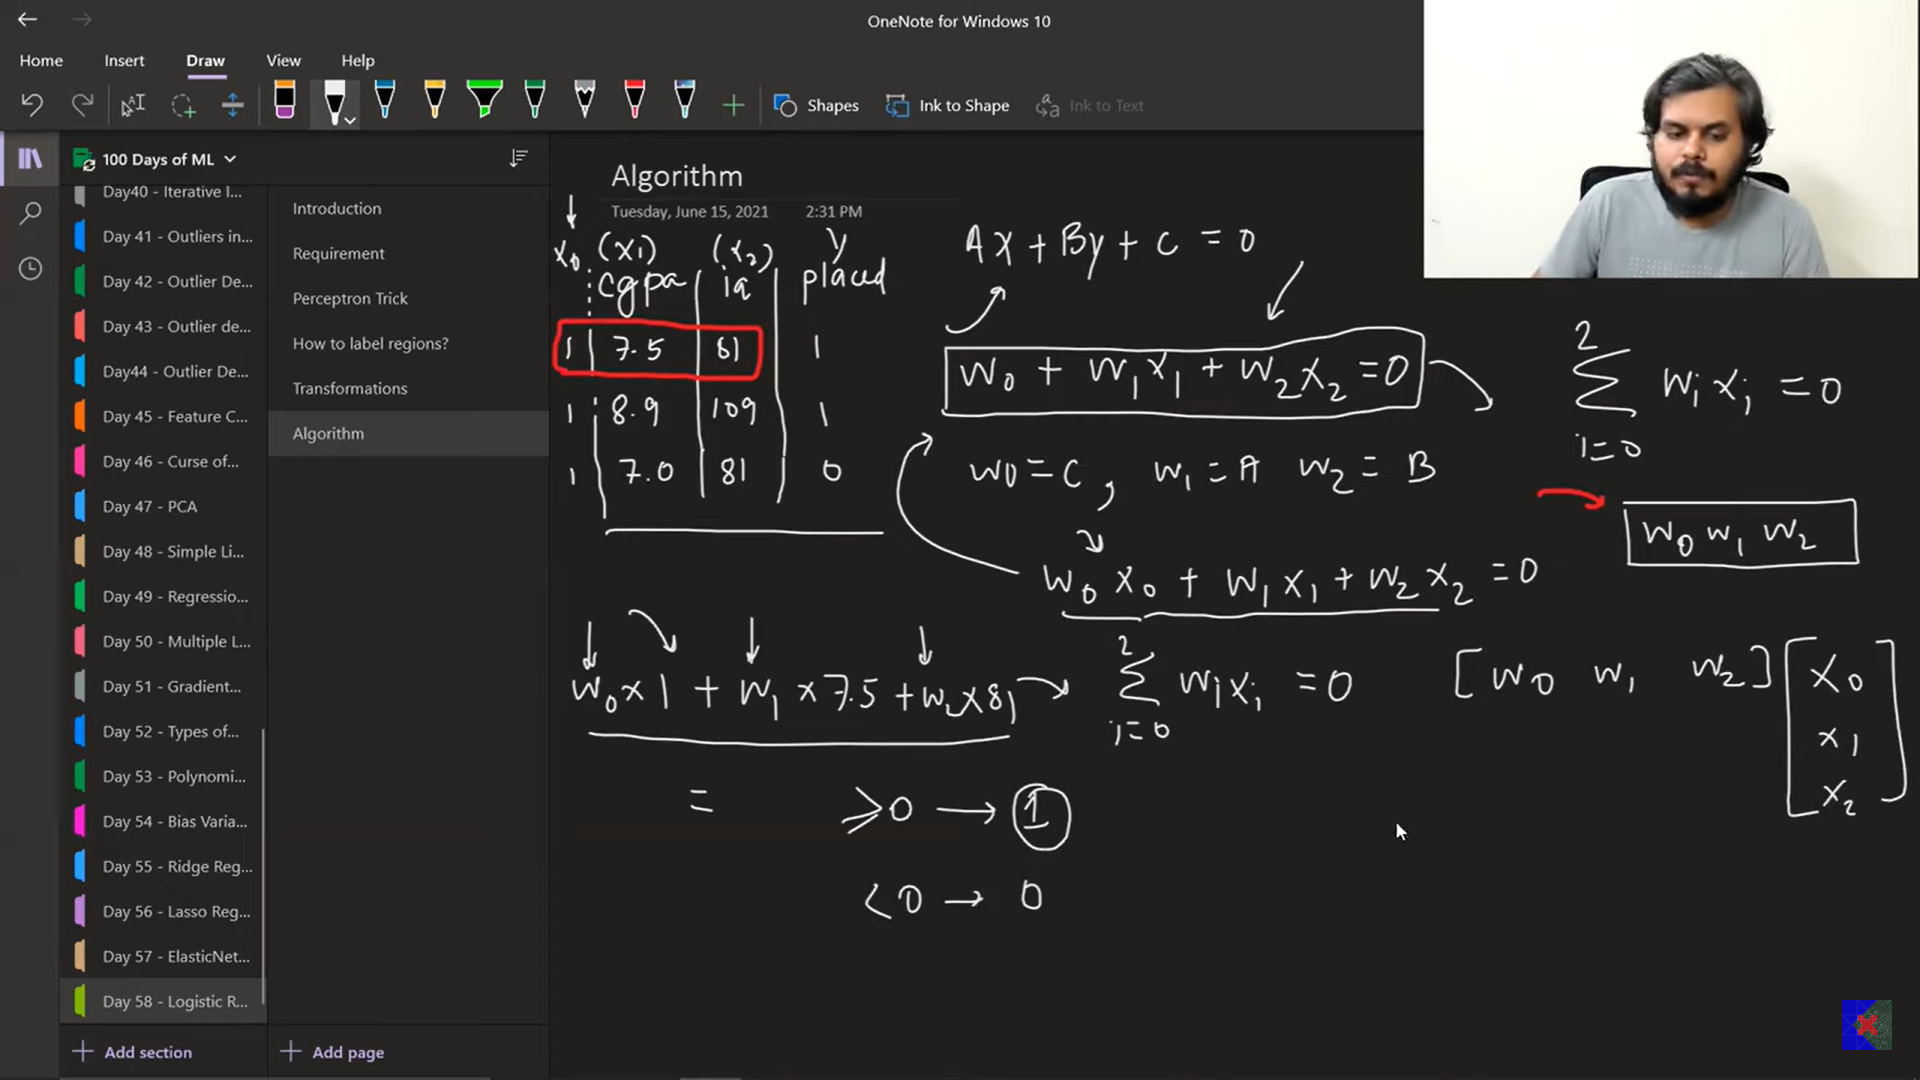 OneNote for Windows 10
Home Insert Draw View Help
Shapes Ink to Shape Ink to Text
100 Days of ML
Day40 - Iterative I...
Day 41 - Outliers in...
Day 42 - Outlier De...
Day 43 - Outlier de...
Day44 - Outlier De...
Day 45 - Feature C...
Day 46 - Curse of...
Day 47 - PCA
Day 48 - Simple Li...
Day 49 - Regressio...
Day 50 - Multiple L...
Day 51 - Gradient...
Day 52 - Types of...
Day 53 - Polynomi...
Day 54 - Bias Varia...
Day 55 - Ridge Reg...
Day 56 - Lasso Reg...
Day 57 - ElasticNet...
Day 58 - Logistic R...
Add section
Introduction
Requirement
Perceptron Trick
How to label regions?
Transformations
Algorithm
Add page
Algorithm
Tuesday, June 15, 2021 2:31 PM
x₀ (x₁) (x₂) y
cgpa iq placed
1 7.5 81 1
1 8.9 109 1
1 7.0 81 0
Ax + By + C = 0
w₀ + w₁x₁ + w₂x₂ = 0
w0 = C, w₁ = A w₂ = B
w₀x₀ + w₁x₁ + w₂x₂ = 0
2
∑ wᵢxᵢ = 0
i=0
w₀ w₁ w₂
w₀×1 + w₁×7.5 + w₂×81
2
∑ wᵢxᵢ = 0
i=0
[w₀ w₁ w₂] [x₀
x₁
x₂]
= ≥0 → 1
<0 → 0